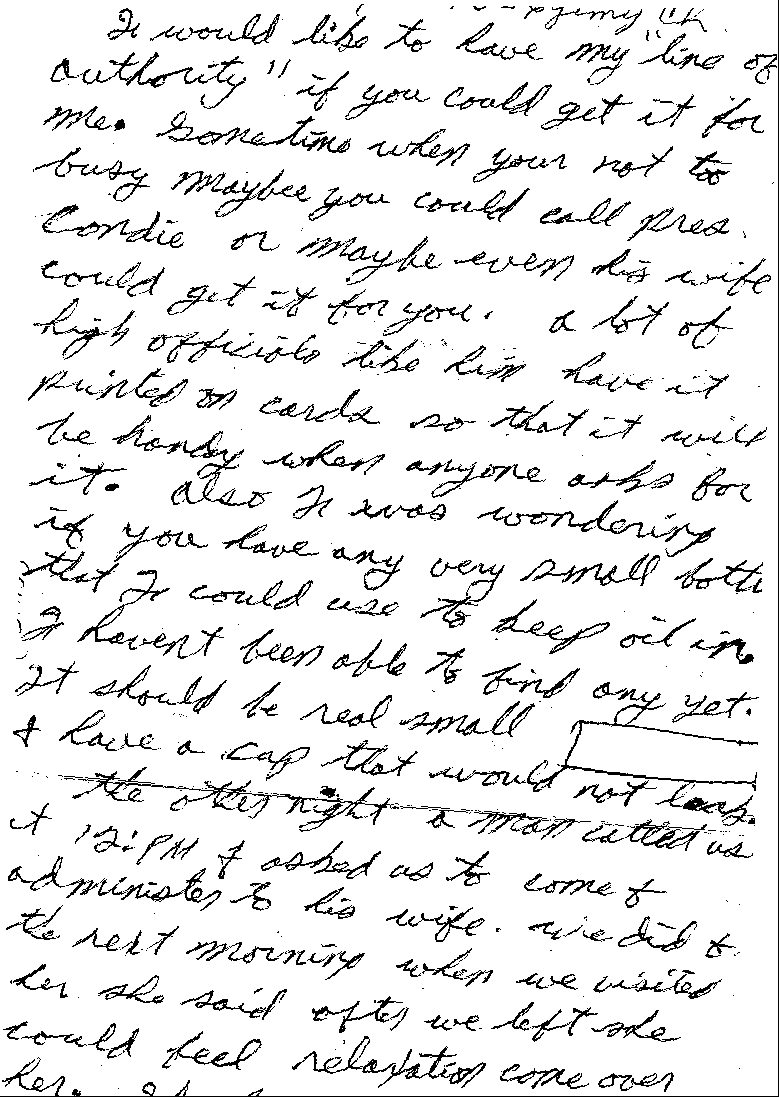 I would like to have my "line of
authority" if you could get it for
me. Sometime when your not too
busy maybee you could call Pres.
Condie or maybe even his wife
could get it for you. A lot of
high officials like him have it
printed on cards so that it will
be handy when anyone asks for
it. Also I was wondering
if you have any very small bottle
that I could use to keep oil in.
I havent been able to find any yet.
It should be real small
& have a cap that would not leak.
the other night a man called us
at 12:PM & asked us to come &
administer to his wife. We did &
the next morning when we visited
her she said after we left she
could feel relaxation come over
her.